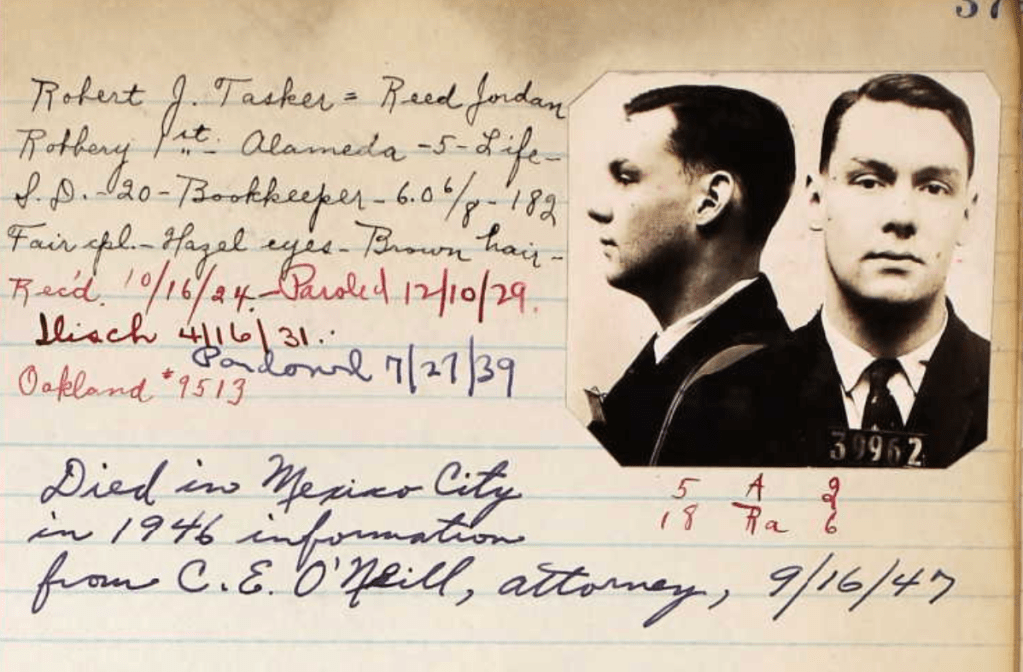 37
Robert J. Tasker = Reed Jordan
Robbery 1st. Alameda - 5 - Life -
S.D. - 20 - Bookkeeper - 6.0 6/8 - 182
Fair cpl. - Hazel eyes - Brown hair -
Rec'd. 10/16/24 - Paroled 12/10/29.
Disch 4/16/31.
Pardoned 7/27/39
Oakland #9513
39962
5 A 2
18 Ra 6
Died in Mexico City
in 1946 information
from C. E. O'Neill, attorney, 9/16/47